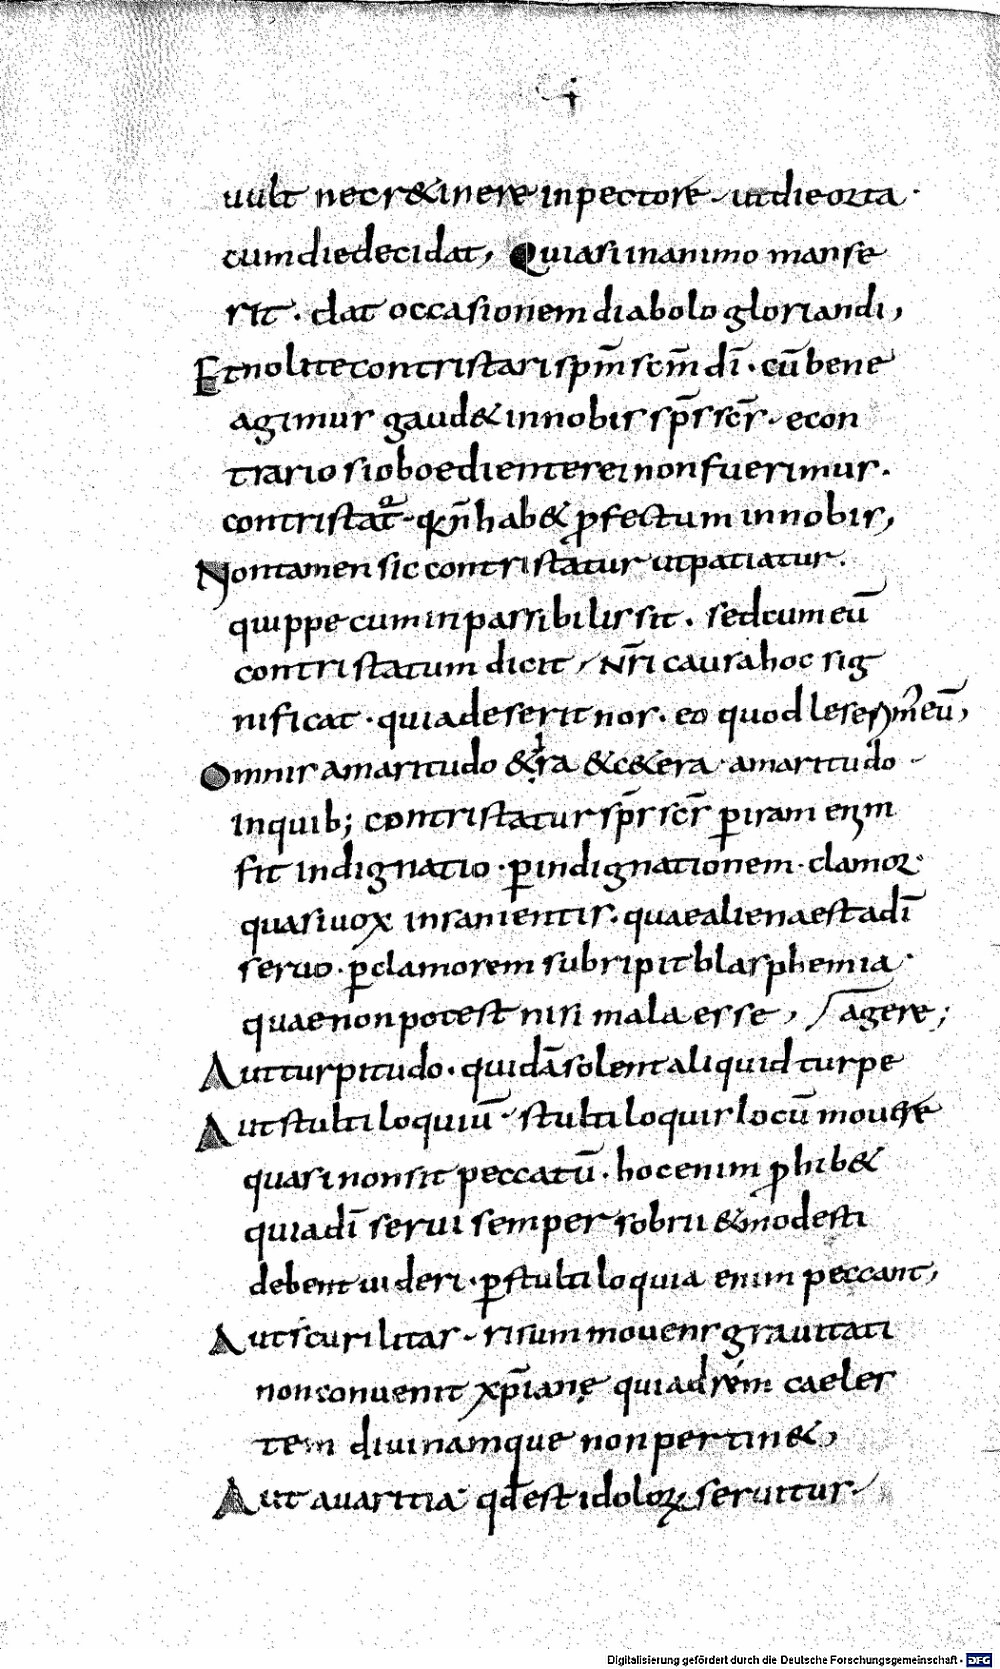 uult nec r&inere in pectore. ut die orta.
cum die decidat, Quia si in animo manse
rit. dat occasionem diabolo gloriandi,
Et nolite contristari sp̄m sc̄m dī. cū bene
agimus gaud& in nobis sp̄s sc̄s. econ
trario si oboedientes ei non fuerimus.
contristat̄. hab& ꝓfectum in nobis,
Non tamen sic contristatur ut patiatur.
quippe cum inpassibilis sit. sed cum eū
contristatum dicit, nr̄i causa hoc sig
nificat. quia deserit nos. eo quod eū,
Omnis amaritudo &ira &c&era. amaritudo
Inquib; contristatur sp̄s sc̄s ꝑ iram enim
fit indignatio. ꝑ indignationem. clamor.
quasi uox insanientis. quae aliena est a dī
seruo. ꝑ clamorem subripit blasphemia.
quae non potest nisi mala esse, / āgere;
Aut turpitudo. quidā solent aliquid turpe
Aut stultiloquiū. stultiloquis locū mouere
quasi non sit peccatū. hoc enim ꝓhib&
quia dī serui semper sobrii & modesti
debent uideri. ꝑ stultiloquia enim peccant,
Aut scurilitas. risum mouens grauitati
non conuenit xp̄iane quia ad rem caeles
tem diuinamque non pertin&,
Aut auaritia. qd̄ est idoloꝝ seruitus.
Digitalisierung gefördert durch die Deutsche Forschungsgemeinschaft - DFG